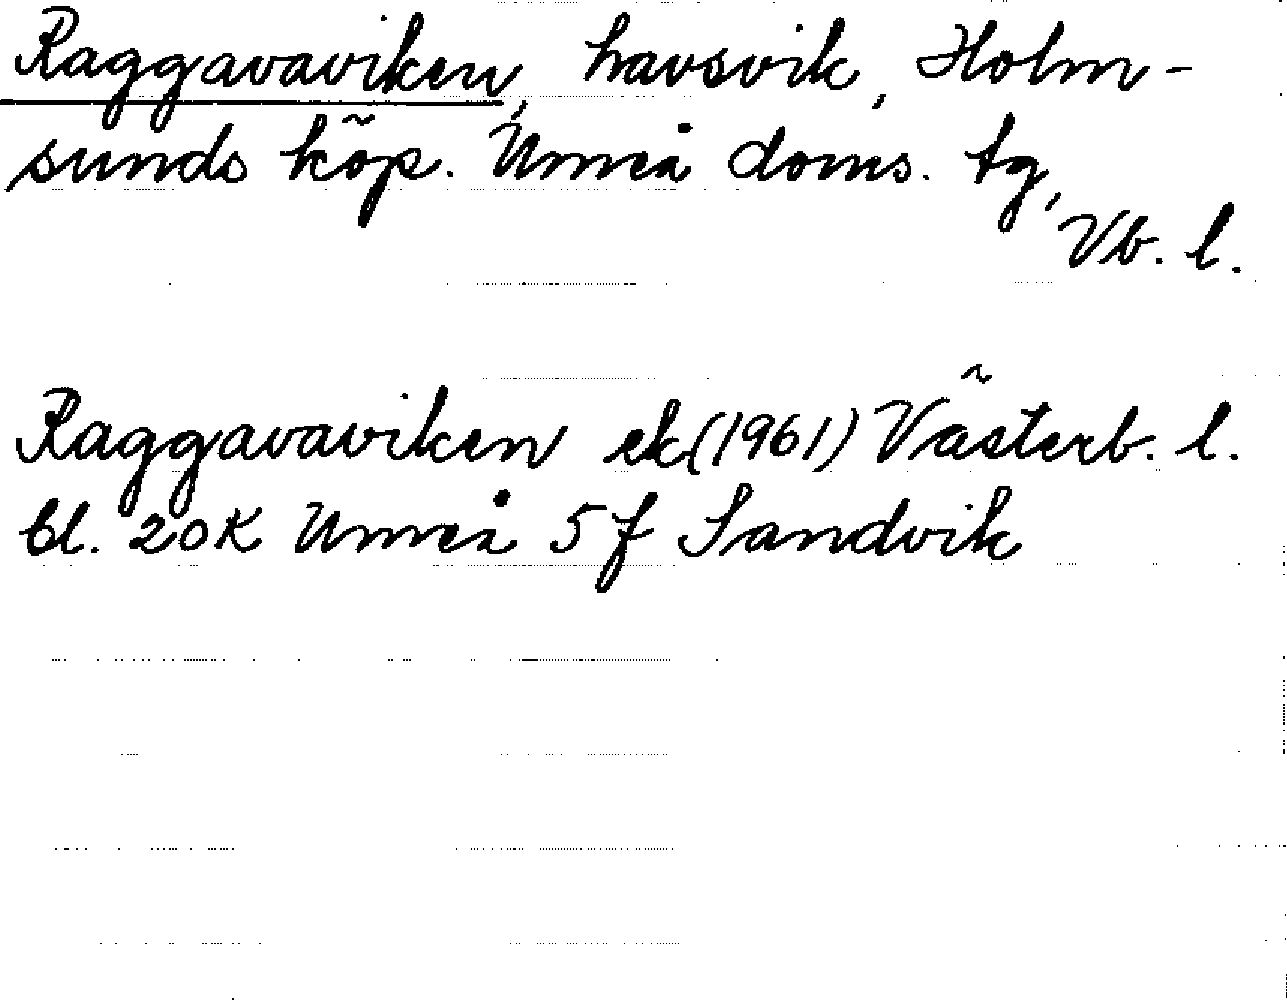 Raggavaviken, havsvik, Holm-
sunds köp. Umeå doms. tg,
Vb. l.
Raggavaviken ek(1961) Västerb. l.
bl. 20K Umeå 5f Sandvik